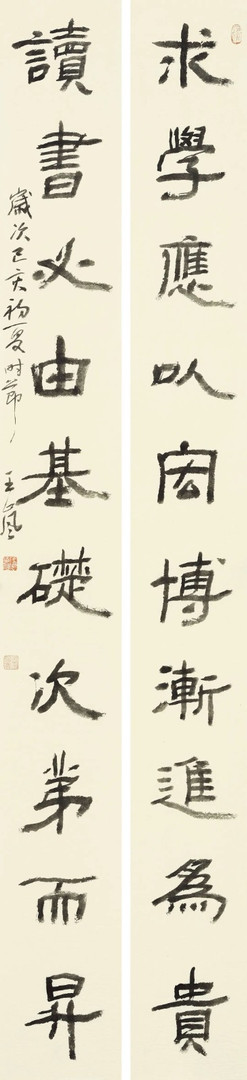 求學應以宏博漸進為貴
讀書必由基礎次第而昇
歲次己亥初夏時節
王嵐